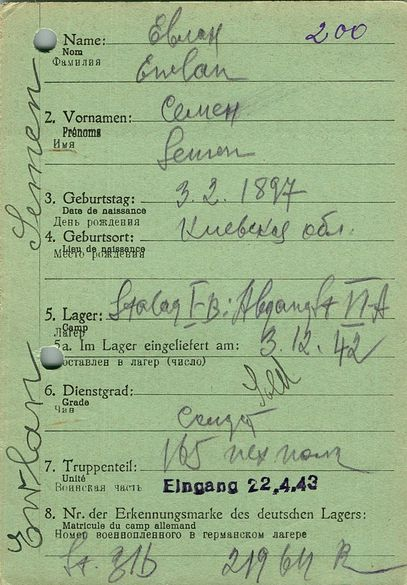 200
Name: Евлан
Nom
Фамилия Ewlan
2. Vornamen: Семен
Prénoms
Имя Semen
3. Geburtstag: 3.2.1897
Date de naissance
День рождения
4. Geburtsort: Киевская обл.
Lieu de naissance
Место рождения
5. Lager: Stalag I-B: Abgang St VI-A
Camp
Лагерь
5a. Im Lager eingeliefert am: 3.12.42
оставлен в лагерь (число)
6. Dienstgrad: Sold
Grade
Чин солдат
165 пех полк
7. Truppenteil:
Unité
Воинская часть Eingang 22.4.43
8. Nr. der Erkennungsmarke des deutschen Lagers:
Matricule du camp allemand
Номер военнопленного в германском лагере
St. 31b 21964 R
Ewlan Semen